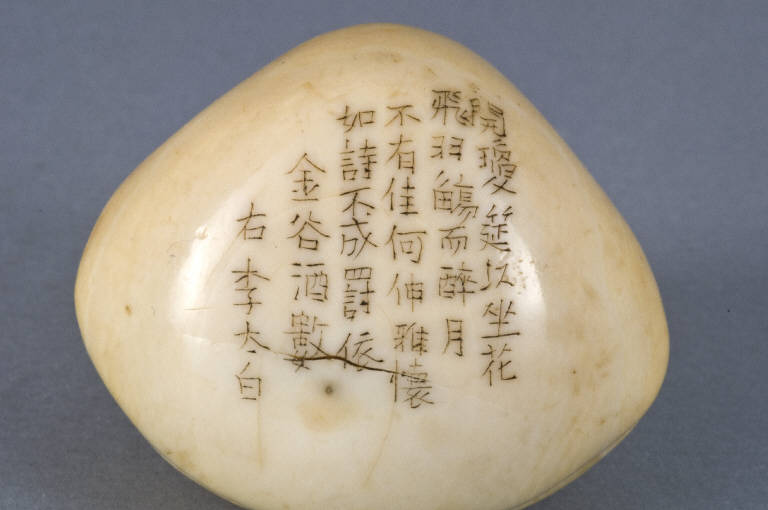 開瓊筵以坐花
飛羽觴而醉月
不有佳何伸雅懐
如詩不成罰依
金谷酒數
右李太白